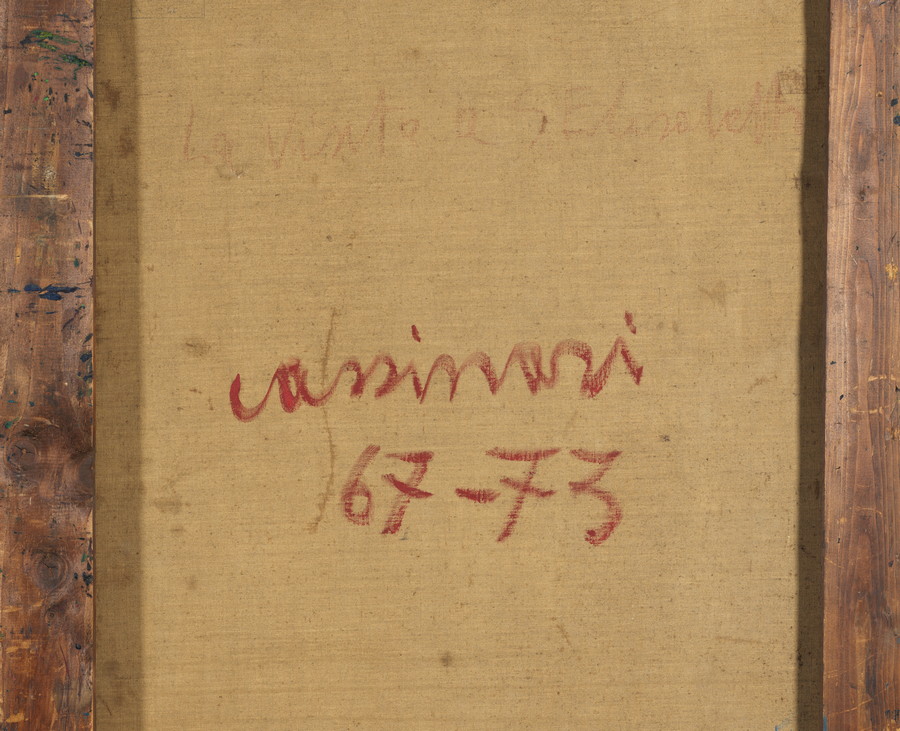 La Visita a S Elisabetta
cassinari
67-73